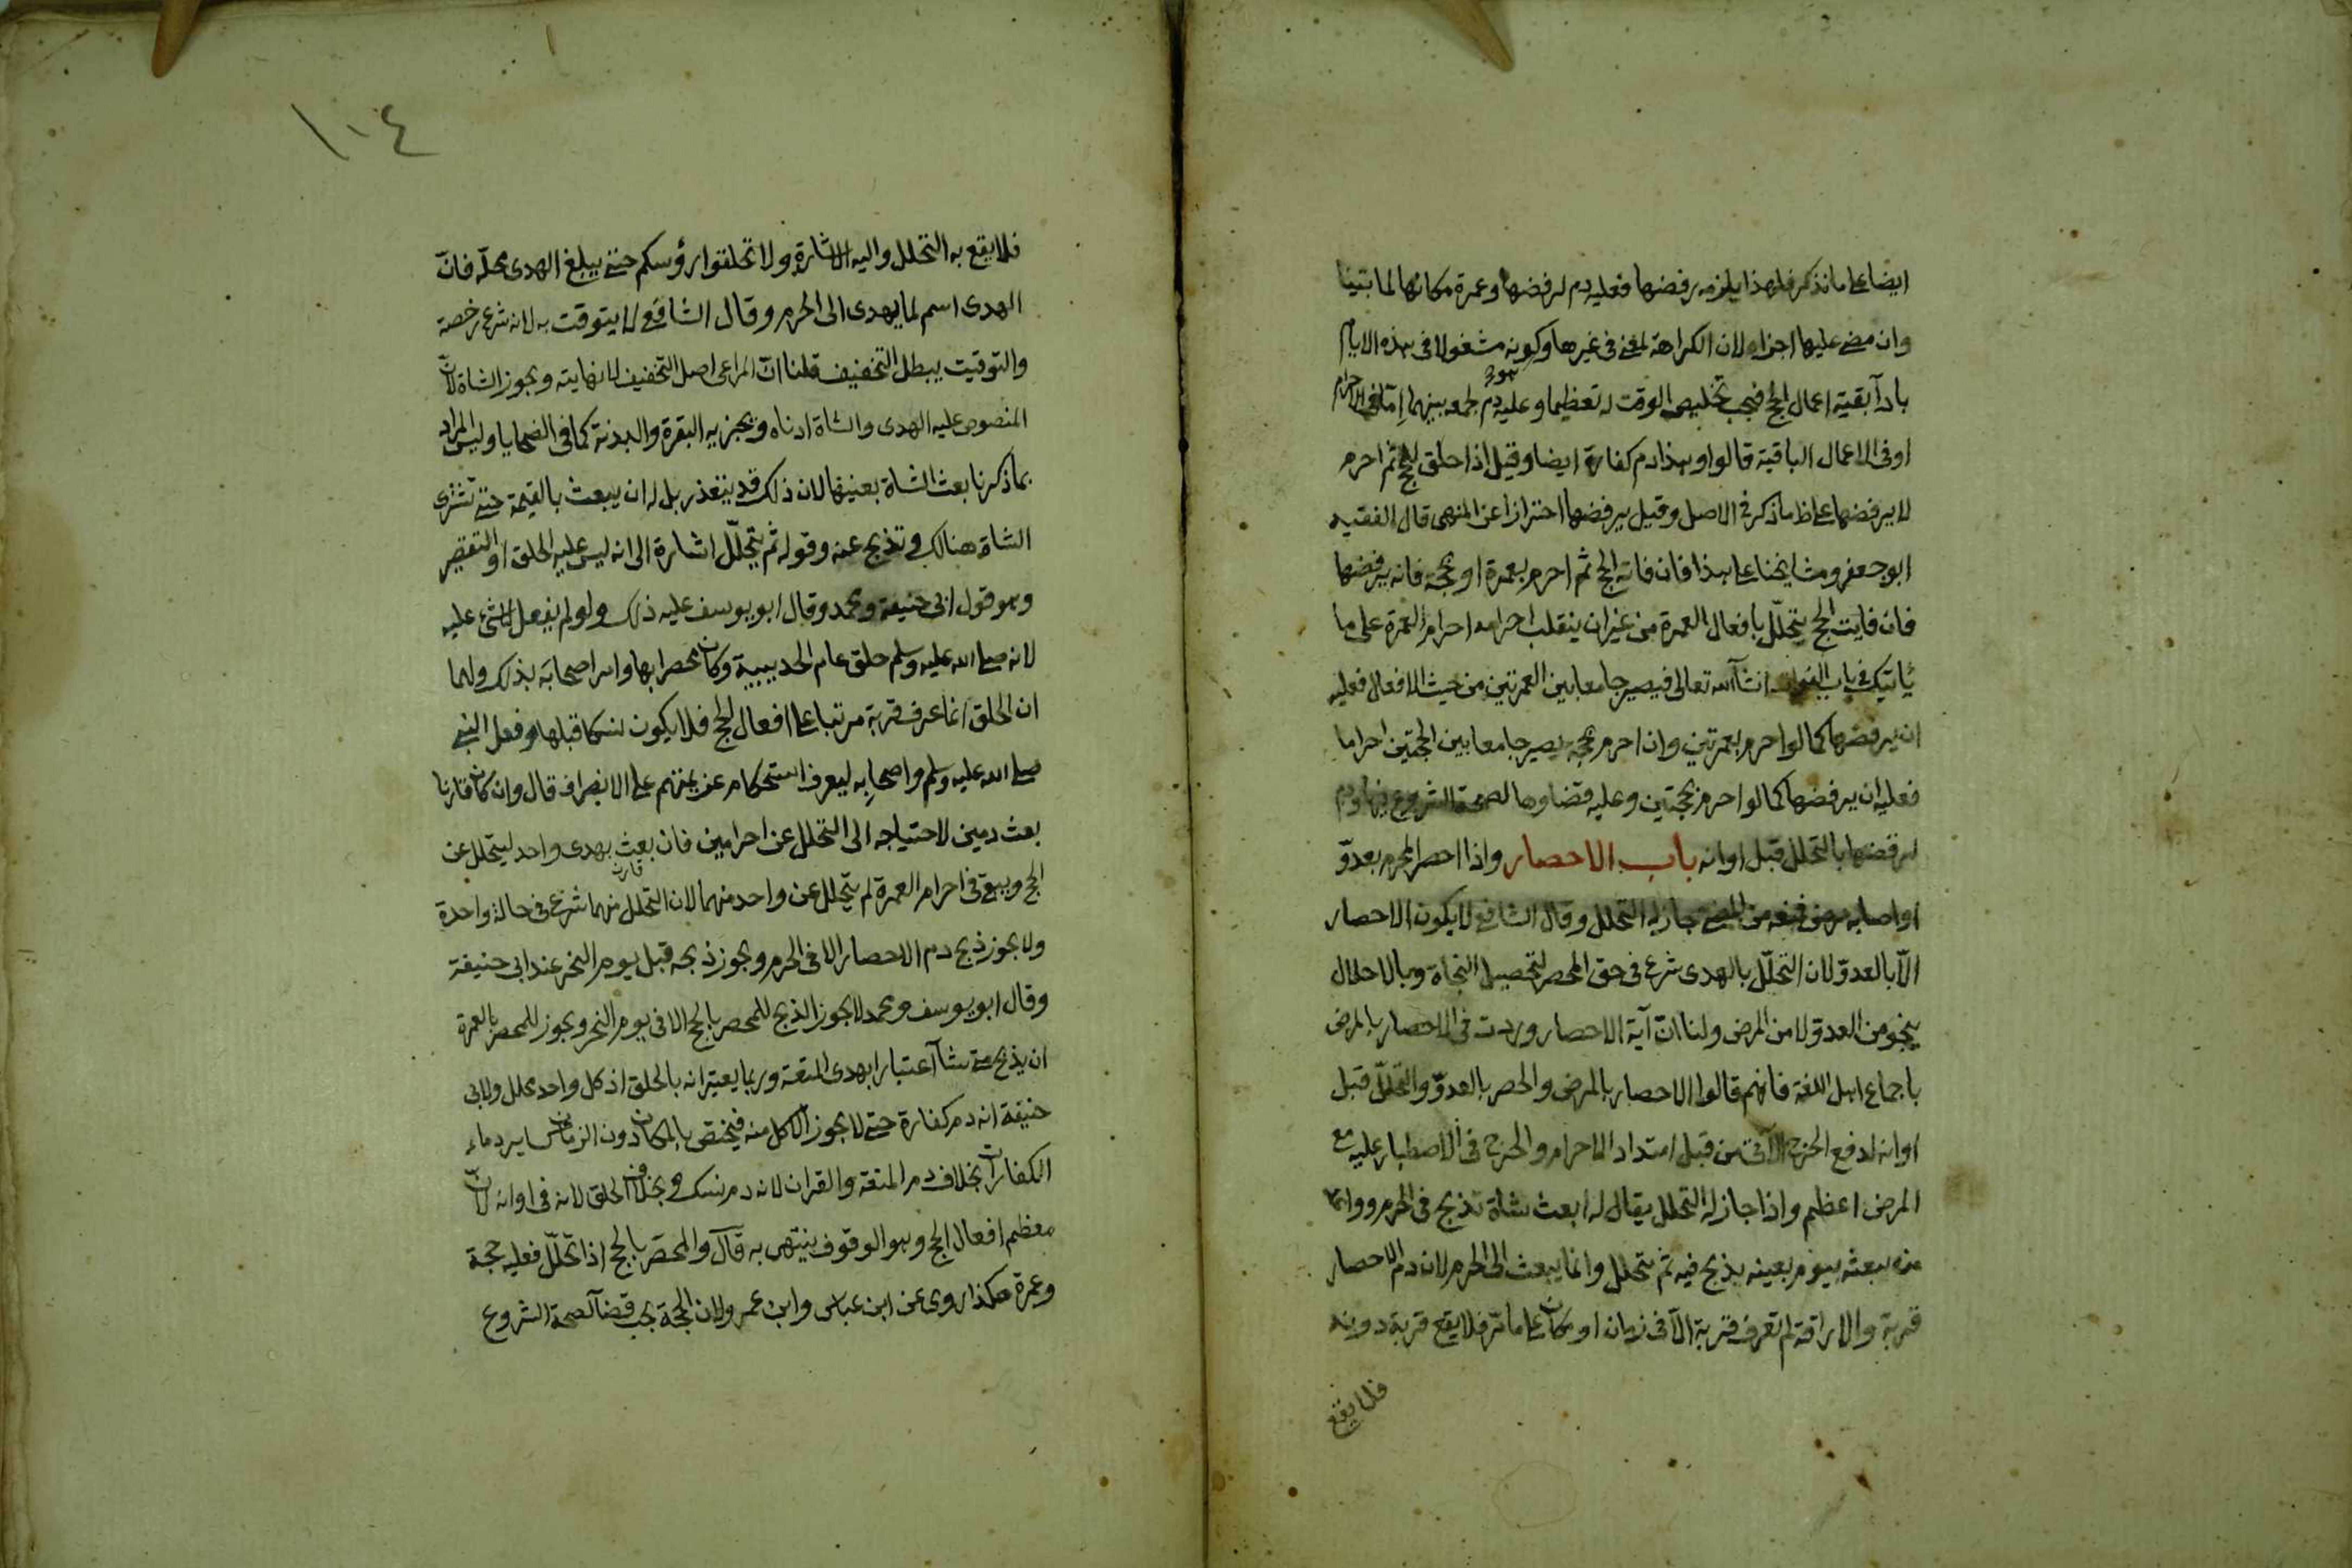 ايضا على ما نذكر فلهذا يلزمه رفضها فعليه دم لرفضها وعمرة مكانها لما بينا
وان مضى عليها اجزاه لان الكراهة لمعنى فى غيرها وكونه مشغولا فى هذه الايام
بادآ بقية اعمال الحج فيجب تخليص الوقت له تعظيما وعليه دم لجمعه بينهما اما فى الاحرام
او فى الاعمال الباقية قالوا وهذا دم كفارة ايضا وقيل اذا حلق للحج ثم احرم
لا يرفضها على ظ ما ذكر فى الاصل وقيل يرفضها احترازا عن المنهى قال الفقيه
ابو جعفر ومشايخنا على هذا فان فاته الحج ثم احرم بعمرة او بحجة فانه يرفضها
فان فايت الحج يتحلّل بافعال العمرة من غير ان ينقلب احرامه احرام العمرة على ما
ياتيك فى باب الفوات ان شآ الله تعالى فيصير جامعا بين العمرتين من حيث الافعال فعليه
ان يرفضها كما لو احرم بعمرتين وان احرم بحجة يصير جامعا بين الحجتين احراما
فعليه ان يرفضها كما لو احرم بحجتين وعليه قضاوها لصحة الشروع فيها ودم
لرفضها بالتحلل قبل اوانه باب الاحصار واذا احصر المحرم بعدوّ
او اصابه مرض فمنعه من المضى جاز له التحلل وقال الشافعى لا يكون الاحصار
الّا بالعدوّ لان التحلّل بالهدى شرع فى حق المحصر لتحصيل النجاة وبالاحلال
ينجو من العدوّ لا من المرض ولنا انّ آية الاحصار وردت فى الاحصار بالمرض
باجماع اهل اللغة فانهم قالوا الاحصار بالمرض والحصر بالعدوّ والتحلّل قبل
اوانه لدفع الحرج الآتى من قبل امتداد الاحرام والحرج فى الاصطبار عليه مع
المرض اعظم واذا جاز له التحلل يقال له ابعث شاة تذبح فى الحرم وواعد
من يبعثه بيوم بعينه يذبح فيه ثم يتحلل وانما يبعث الى الحرم لان دم الاحصار
قربة والاراقة لم تعرف قربة الّا فى زمان او مكان على ما مرّ فلا يقع قربة دونه
فلا يقع
١٠٤
فلا يقع به التحلل واليه الاشارة ولا تحلقوا رؤسكم حتى يبلغ الهدى محلّه فانّ
الهدى اسم لما يهدى الى الحرم وقال الشافعى لا يتوقت به لانه شرع رخصة
والتوقيت يبطل التخفيف قلنا انّ المراعى اصل التخفيف لا نهايته ويجوز الشاة لانّ
المنصوص عليه الهدى والشاة ادناه ويجزيه البقرة والبدنة كما فى الضحايا وليس المراد
بما ذكرنا بعث الشاة بعينها لان ذلك قد يتعذر بل له ان يبعث بالقيمة حتى تشترى
الشاة هنالك وتذبح عنه وقوله ثم يتحلّل اشارة الى انه ليس عليه الحلق او التقصير
وهو قول ابى حنيفة ومحمد وقال ابو يوسف عليه ذلك ولو لم يفعل لا شئ عليه
لانه صلى الله عليه وسلم حلق عام الحديبية وكان محصرا بها وامر اصحابه بذلك ولهما
ان الحلق انما عرف قربة مرتبا على افعال الحج فلا يكون نسكا قبلها وفعل النبى
صلى الله عليه وسلم واصحابه ليعرف استحكام عزيمتهم على الانصراف قال وان كان قارنا
بعث دمين لاحتياجه الى التحلل عن احرامين فان بعث قارن بهدى واحد ليتحلل عن
الحج ويبقى فى احرام العمرة لم يتحلل عن واحد منهما لان التحلل منهما شرع فى حالة واحدة
ولا يجوز ذبح دم الاحصار الا فى الحرم ويجوز ذبحه قبل يوم النحر عند ابى حنيفة
وقال ابو يوسف ومحمد لا يجوز الذبح للمحصر بالحج الا فى يوم النحر ويجوز للمحصر بالعمرة
ان يذبح متى شآ اعتبارا بهدى المتعة وربما يعتبرانه بالحلق اذ كل واحد محلل ولابى
حنيفة انه دم كفارة حتى لا يجوز الاكل منه فيختص بالمكان دون الزمان كساير دماء
الكفارات بخلاف دم المتعة والقران لانه دم نسك وبخلاف الحلق لانه فى اوانه لانّ
معظم افعال الحج وهو الوقوف ينتهى به قآل والمحصر بالحج اذا تحلّل فعليه حجة
وعمرة هكذا روى عن ابن عباس وابن عمر ولان الحجة يجب قضآ لصحة الشروع